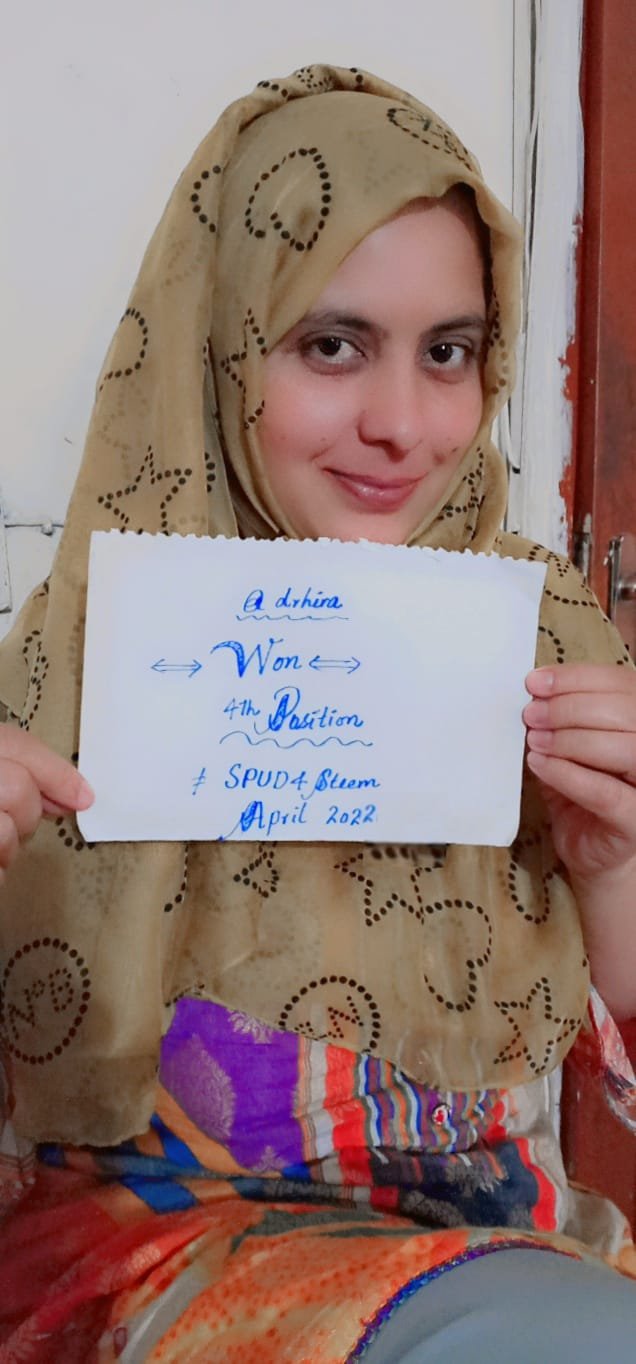 @ drhira
Won
4th Position
# SPUD4 Steem
April 2022
NºB